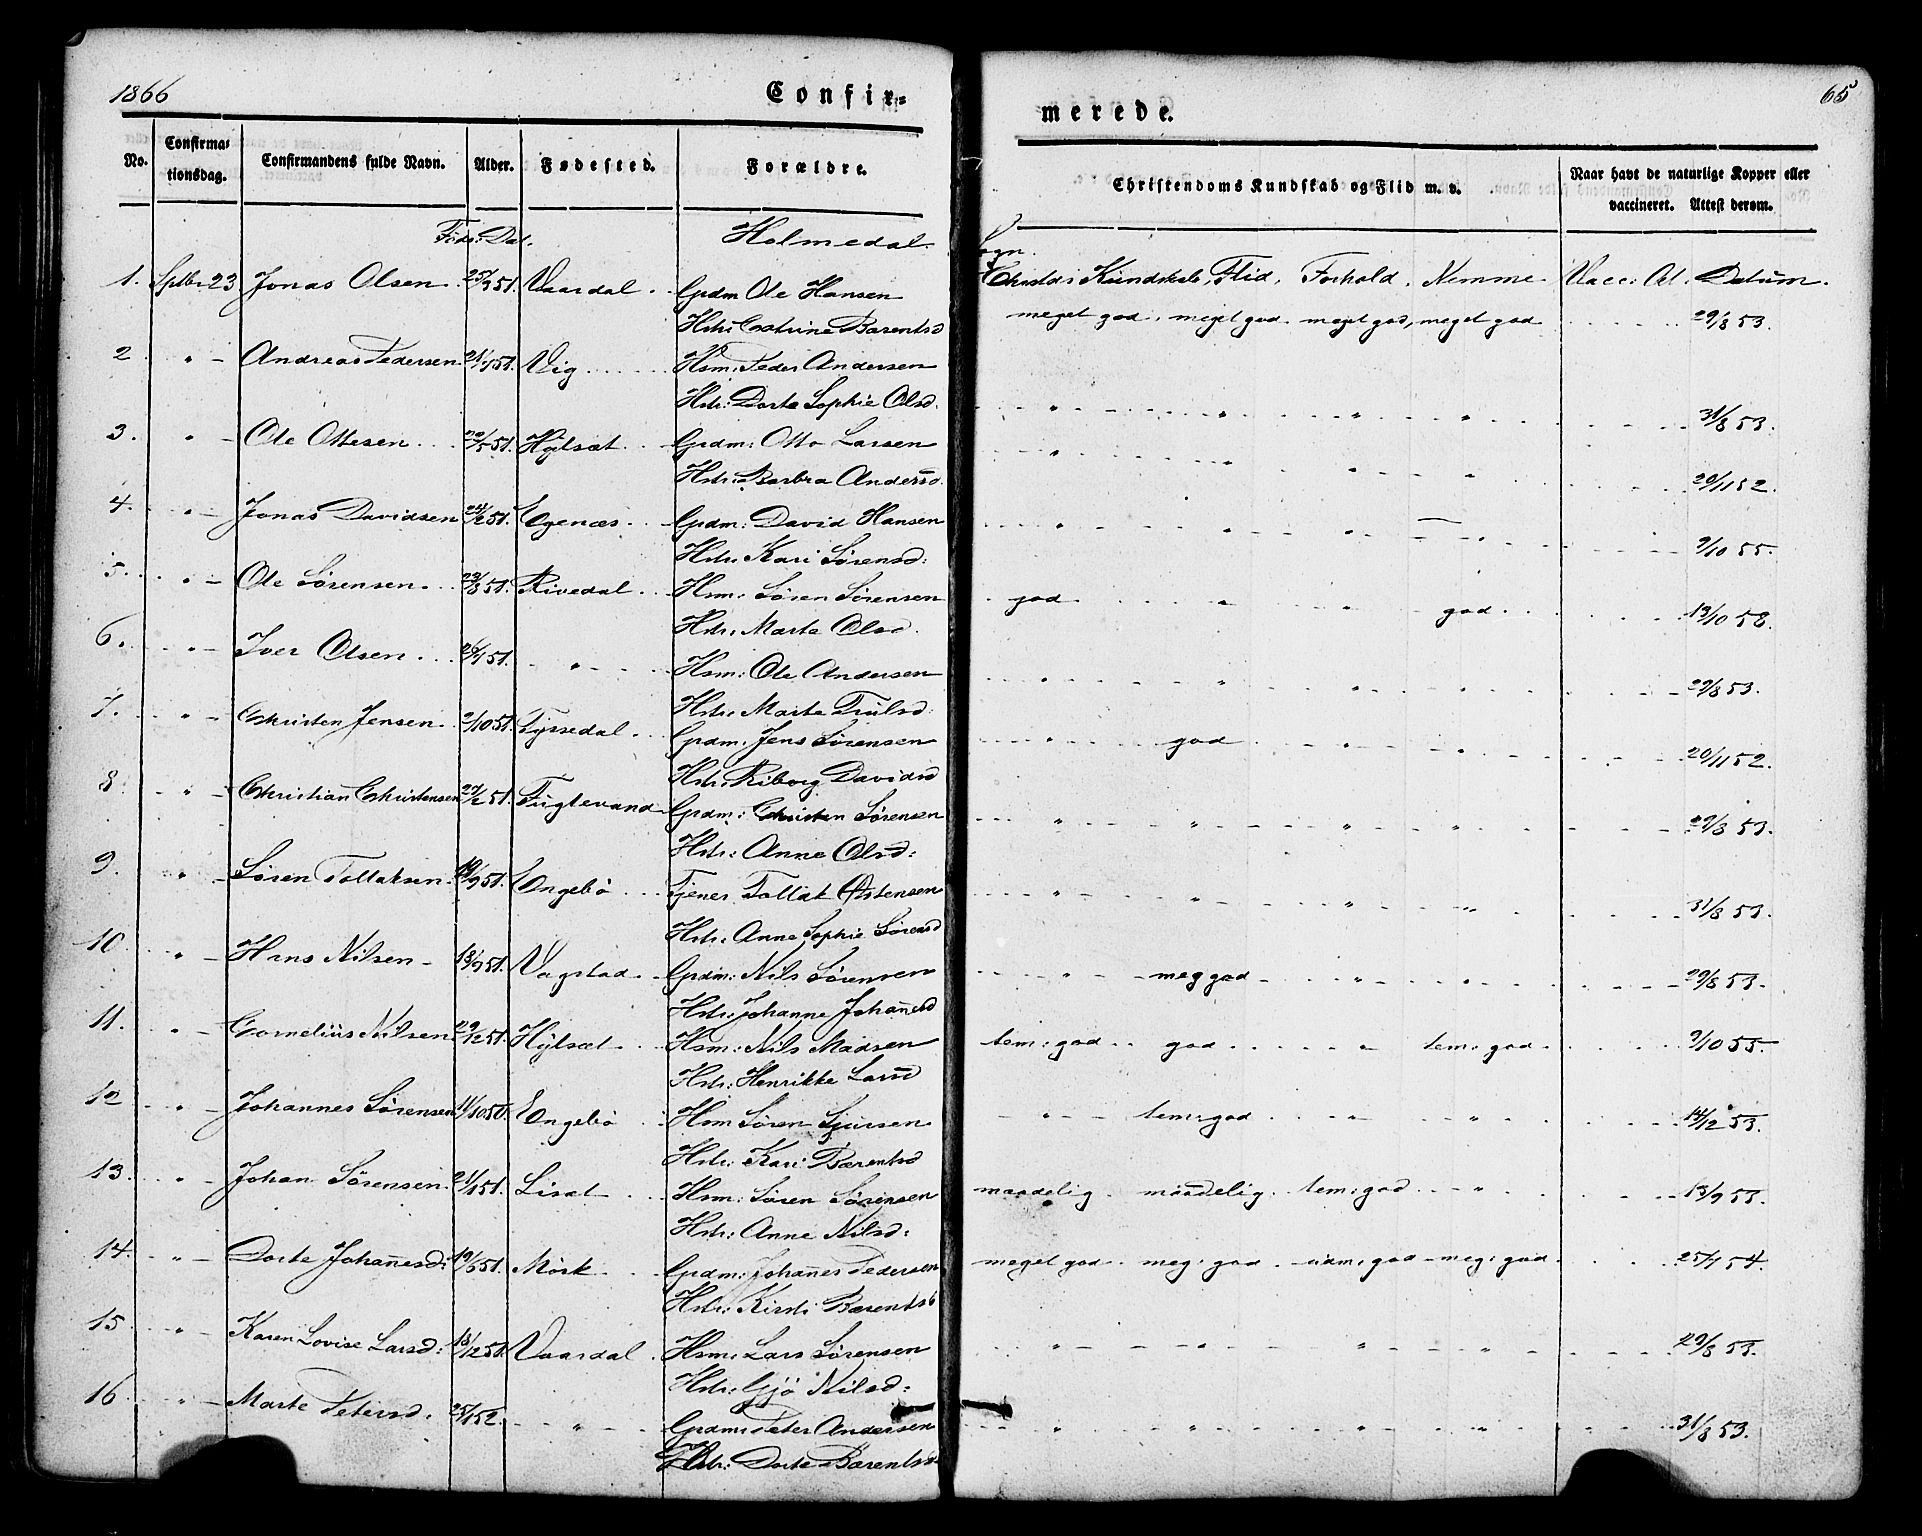 1866 Confir= merede. 65
No. Confirma= tionsdag. Confirmandens fulde Navn. Alder. Fødested. Forældre. Christendoms Kundskab og Flid m. v. Naar havt de naturlige Kopper eller vaccineret. Attest derom.
Føds: Dat. Holmedal Sogn.
1. Sptbr 23 Jonas Olsen 51. Vaardal Grdm Ole Hansen Christd: Kundskab, Flid, Forhold, Nemme Vacc: At: Datum.
Hstr: Cathrine Barentsd meget god, meget god. meget god, meget god 29/8 53.
2 " Andreas Pedersen 51. Vig Hsm: Peder Andersen
Hstr: Dorte Sophie Olsd. " " " " 31/8 53.
3. " Ole Ottesen 51. Hylsæt Grdm: Otto Larsen
Hstr: Barbra Andersd. " " " " 20/11 52.
4. " Jonas Davidsen 51. Egenæs Grdm: David Hansen " " " —
Hstr: Kari Sørensd: 9/10 55.
5. " Ole Sørensen 51. Rivedal Hsm: Søren Sørensen god " " god 13/10 58.
Hstr: Marte Olsd.
6. " Iver Olsen 51. " Hsm: Ole Andersen " " " " 29/8 53.
Hstr: Marte Trulsd:
7. " Christen Jensen 2/10 51. Tyssedal Grdm: Jens Sørensen " god " " 20/11 52.
Hstr: Riborg Davidsd
8. " Christian Christensen 51. Fuglevand Grdm: Christen Sørensen " " " " 29/8 53.
Hstr: Anne Olsd:
9. " Søren Tollaksen 51. Engebø Tjener Tollak Østensen " " " " 31/8 53.
Hstr: Anne Sophie Sørensd
10. " Hans Nilsen 18/9 51. Vagstad Grdm: Nils Sørensen " meg god " " 29/8 53.
Hstr: Johanne Johanesd
11. " Cornelius Nilsen 29/12 51. Hylsæt Hsm: Nils Madsen tem: god god " tem: god 9/10 55.
Hstr: Henrikke Larsd
12 " Johannes Sørensen 11/10 50. Engebø Hsm Søren Sjursen " tem: god " " 14/12 53.
Hstr: Kari Barentsd
13. " Johan Sørensen 51. Lisæt Hsm: Søren Sørensen maadelig maadelig. tem: god " 13/9 53.
Hstr: Anne Nilsd:
14. " Dorte Johanesd: 51. Mørk Grdm: Johanes Pedersen meget god. meg: god udm: god meg: god 54.
Hstr: Kirsti Barentsd
15 " Karen Lovise Larsd: 18/12 51. Vaardal Hsm: Lars Sørensen " " " " 29/8 53.
Hstr: Gjø Nilsd:
16 " Marte Petersd: 52. " Grdm: Peter Andersen " " " " 31/8 53.
Hstr: Dorte Barentsd